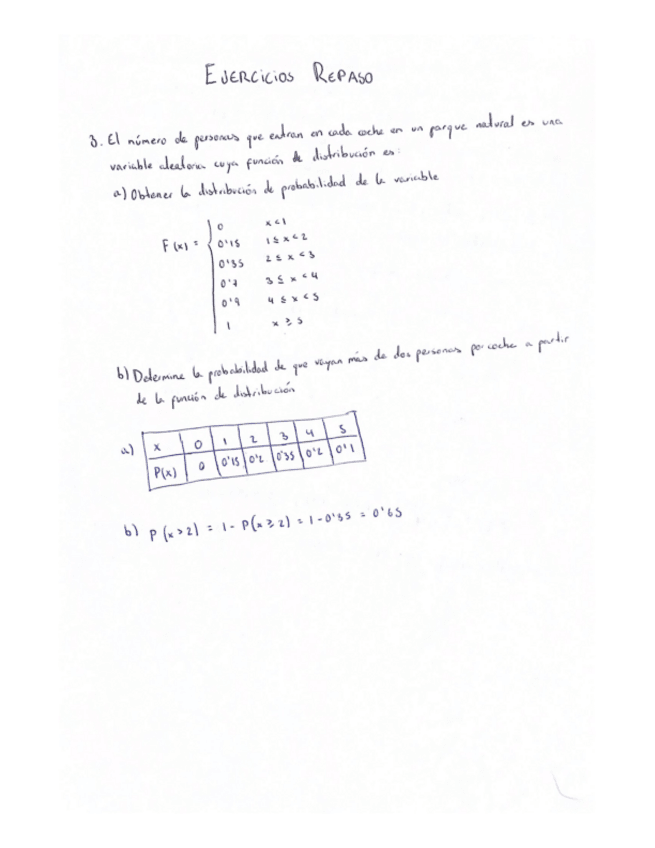 EJERCICIOS REPASO
3. El número de personas que entran en cada coche en un parque natural es una
variable aleatoria cuya función de distribución es:
a) Obtener la distribución de probabilidad de la variable
F(x) = { 0 x<1
0'15 1 ≤ x < 2
0'35 2 ≤ x < 3
0'7 3 ≤ x < 4
0'9 4 ≤ x < 5
1 x ≥ 5
b) Determine la probabilidad de que vayan más de dos personas por coche a partir
de la función de distribución
a) x 0 1 2 3 4 5
P(x) 0 0'15 0'2 0'35 0'2 0'1
b) P(x>2) = 1 - P(x≥2) = 1 - 0'35 = 0'65